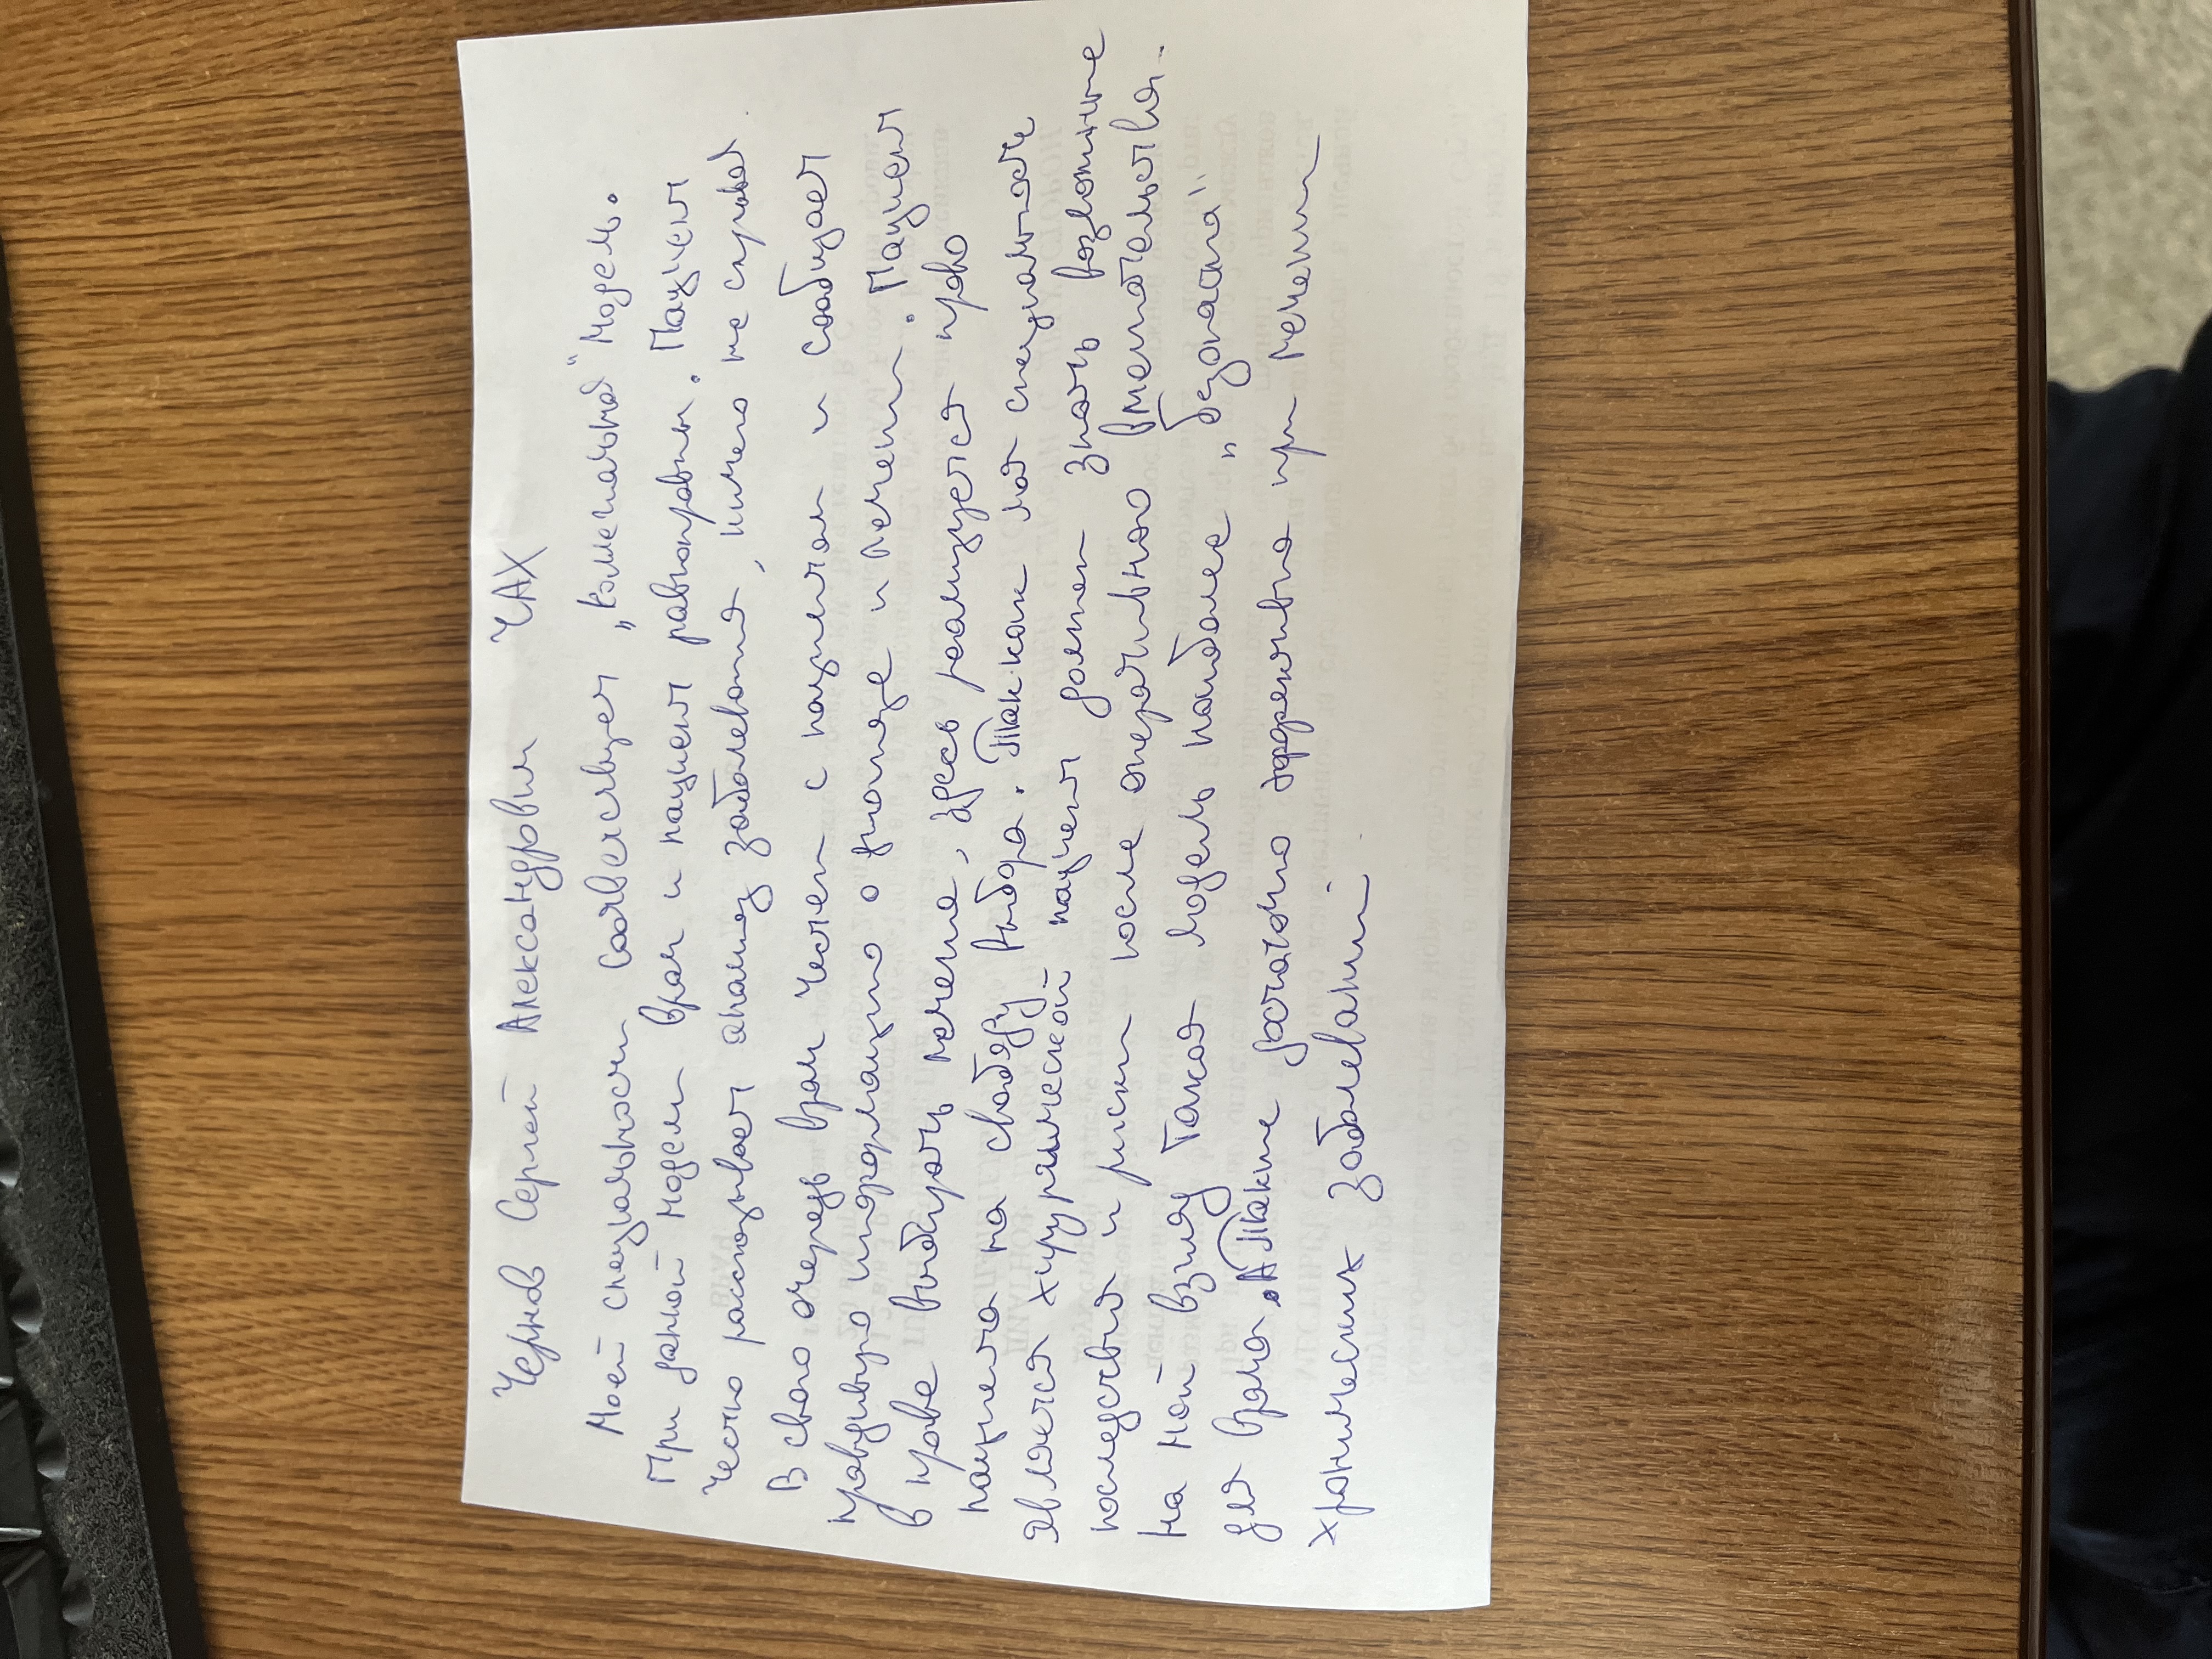 Чернов Сергей Александрович ЧАХ
Моей специальности соответствует „коллегиальная" модель.
При данной модели врач и пациент равноправны. Пациент
честно рассказывает анамнез заболевания, ничего не скрывая
В свою очередь врач честен с пациентом и сообщает
правдивую информацию о диагнозе и лечении. Пациент
в праве выбирать лечение, здесь реализуется право
пациента на свободу выбора. Так как моя специальность
является хирургической пациент должен знать возможные
последствия и риски после оперативного вмешательства.
На мой взгляд такая модель наиболее „безопасна"
для врача. А также достаточно эффективна при лечении
хронических заболеваний